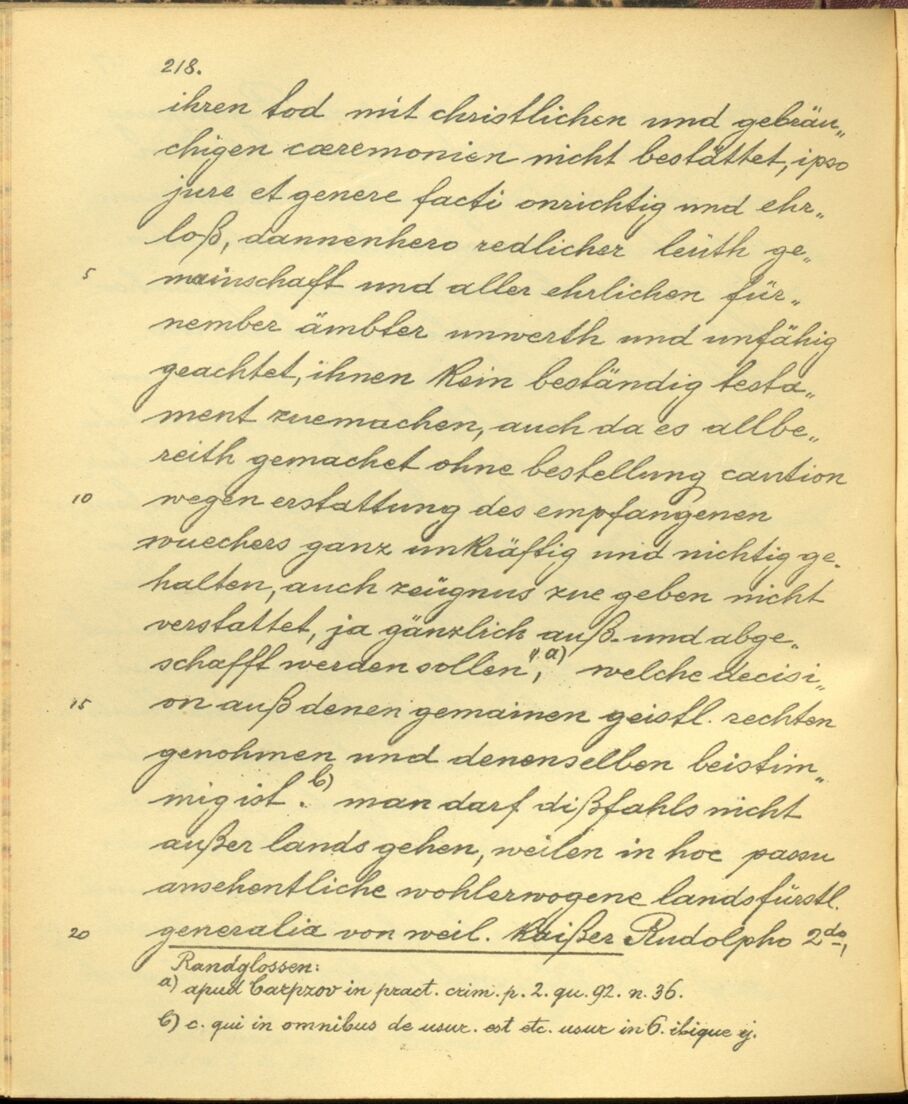 218.
ihren tod mit christlichen und gebräu„
chigen cæremonien nicht bestättet, ipso
jure et genere facti onrichtig und ehr„
loß, dannenhero redlicher leüth ge„
5 mainschafft und aller ehrlichen für„
nember ämbter unwerth und unfähig
geachtet, ihnen kein beständig testa„
ment zuemachen, auch da es allbe„
reith gemachet ohne bestellung caution
10 wegen erstattung des empfangenen
wuechers ganz unkräftig und nichtig ge„
halten, auch zeügnus zue geben nicht
verstattet, ja gänzlich auß- und abge„
schafft werden sollen", a) welche decisi„
15 on auß denen gemainen geistl. rechten
genohmen und denenselben beistim„
mig ist. b) man darf dißfahls nicht
außer lands gehen, weilen in hoc passu
ansehentliche wohlerwogene landsfürstl.
20 generalia von weil. Kaißer Rudolpho 2do,
Randglossen:
a) apud Carpzov in pract. crim. p. 2. qu. 92. n. 36.
b) c. qui in omnibus de usur. est etc. usur in 6. ibique